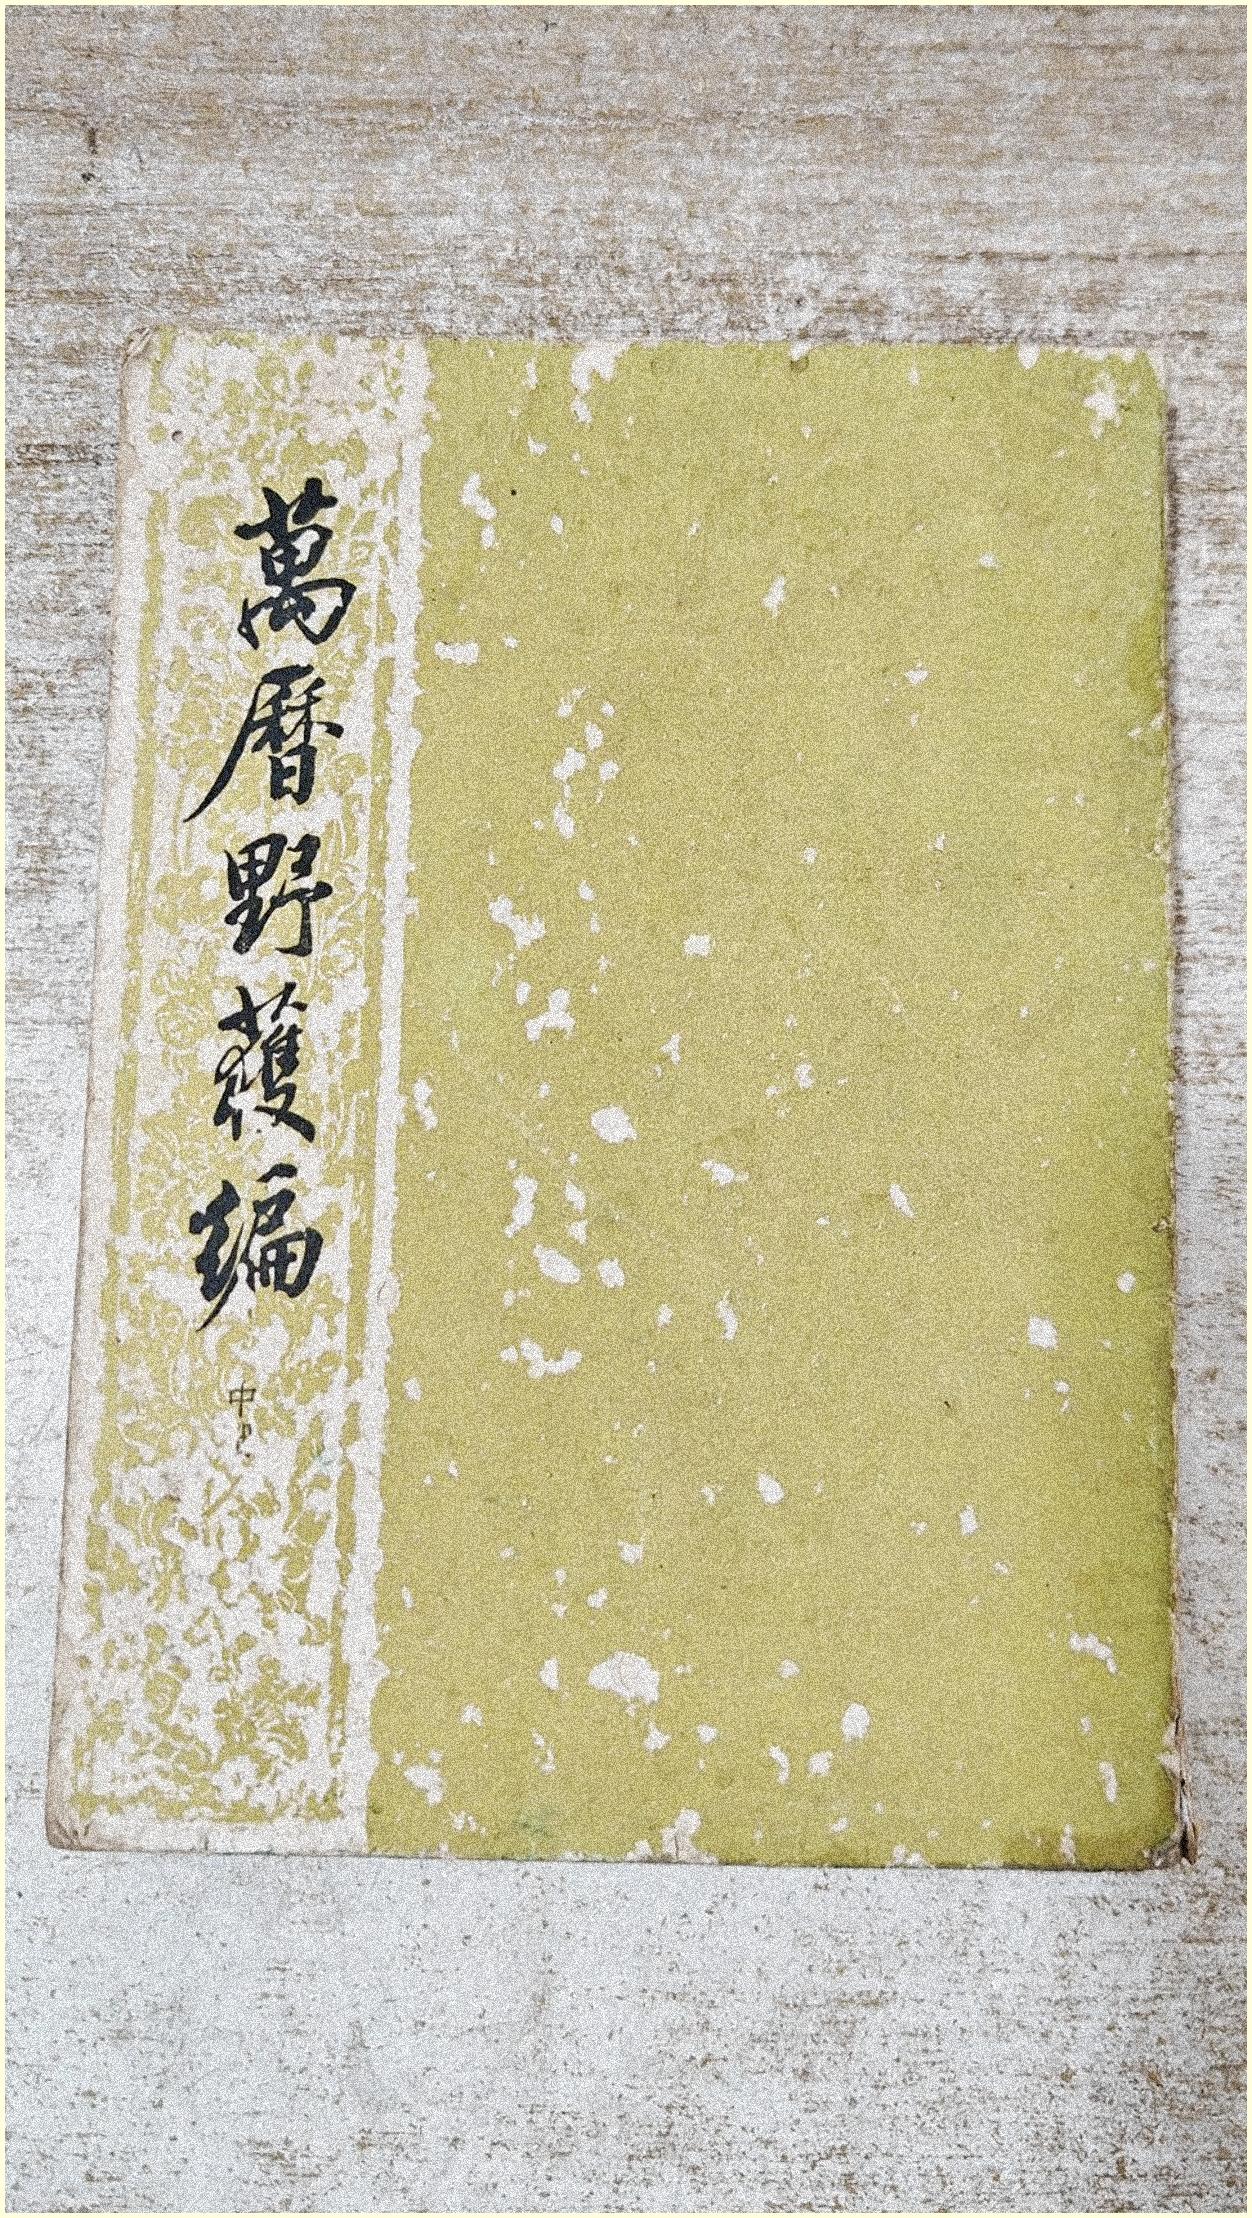 萬曆野獲編
中